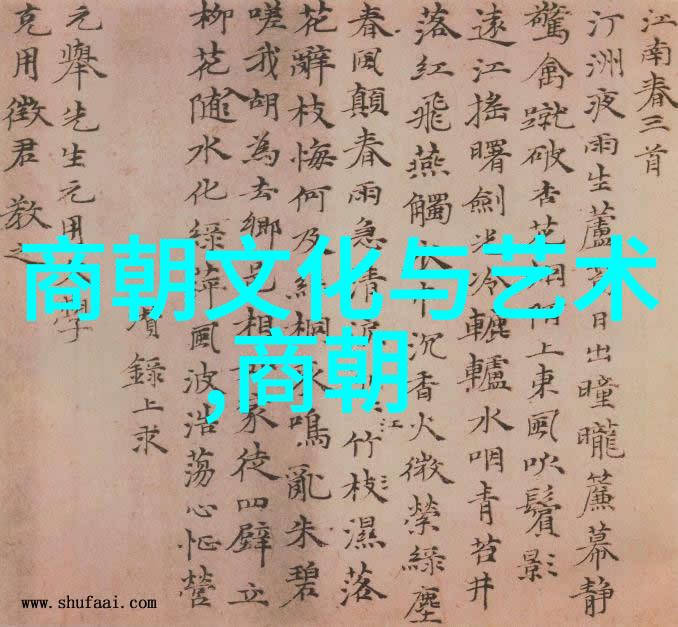 江南春三首
汀洲夜雨生蘆日出曈曨簾幕靜
驚禽蹴破杏花烟陌上東風吹鬢影
遠江搖曙劍光冷轆轤水咽青苔井
落紅飛燕觸衣巾沉香火微縈綠塵
春風顛春雨急清淚江竹枝濕落
花辭枝悔何及絲桐哀鳴亂朱碧
嗟我胡為去鄉邑相如家徒四壁立
柳花隨水化綠萍風波浩蕩心怔營
瓚錄上求
元舉先生元用文學
克用徵君教之
商朝文化与艺术
,商朝
www.shufaai.com